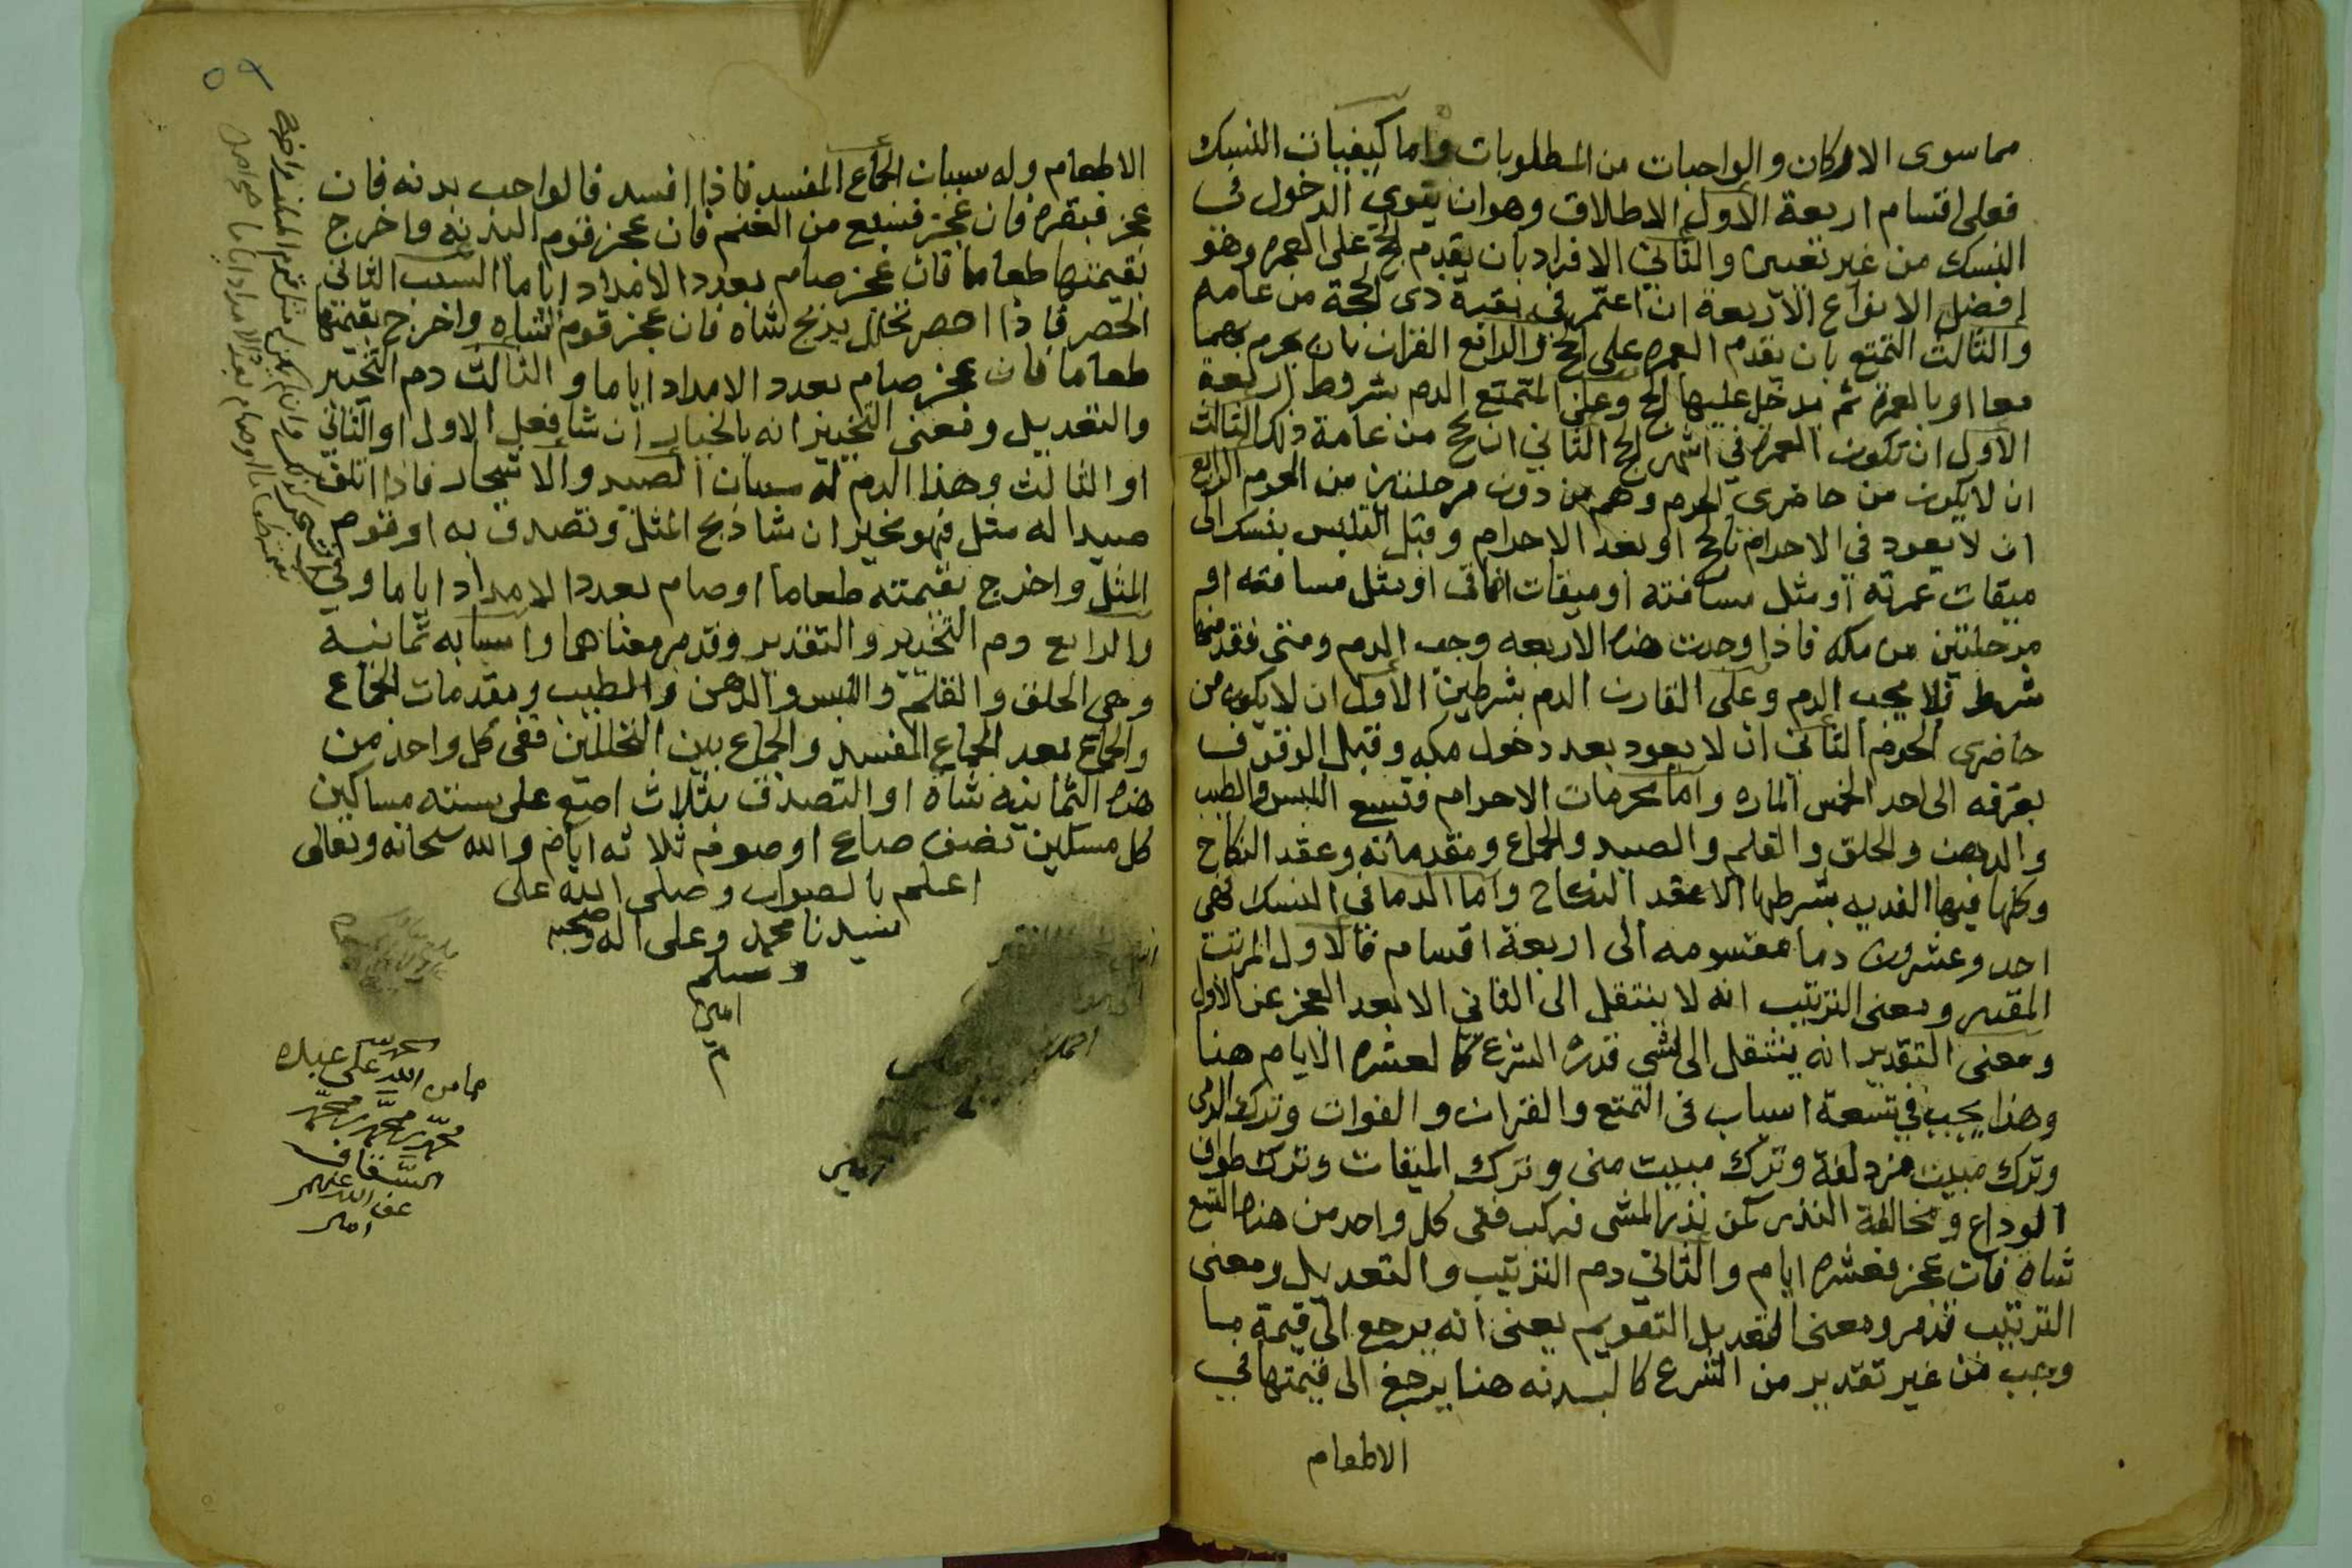 مما سوى الاركان والواجبات من المطلوبات واما كيفيات النسك
فعلى اقسام اربعة الاول الاطلاق وهو ان ينوي الدخول في
النسك من غير تعيين والثاني الافراد بان يقدم الحج على العمره وهو
افضل الانواع الاربعة ان اعتمر في بقية ذي الحجة من عامه
والثالث التمتع بان يقدم العمره على الحج والرابع القران بان يحرم بهما
معا او بالعمرة ثم يدخل عليها الحج وعلى المتمتع الدم بشروط اربعة
الاول ان تكون العمرة في اشهر الحج الثاني ان يحج من عامة ذلك الثالث
ان لا يكون من حاضري الحرم وهم من دون مرحلتين من الحرم الرابع
ان لا يعود في الاحرام بالحج او بعد الاحرام وقبل التلبس بنسك الى
ميقات عمرته او مثل مسافته او ميقات افاقي او مثل مسافته او
مرحلتين من مكه فاذا وجدت هذه الاربعه وجب الدم ومتى فقد منها
شرط فلا يجب الدم وعلى القارن الدم بشرطين الاول ان لا يكون من
حاضري الحرم الثاني ان لا يعود بعد دخول مكه وقبل الوقوف
بعرفه الى احد الخمس الماره واما محرمات الاحرام فتسع اللبس والطيب
والدهن والحلق والقلم والصيد والجماع ومقدماته وعقد النكاح
وكلها فيها الفديه بشرطها الا عقد النكاح واما الدما في النسك فهي
احد وعشرون دما مقسومه الى اربعة اقسام فالاول المرتب
المقدر ومعنى الترتيب انه لا ينتقل الى الثاني الا بعد العجز عن الاول
ومعنى التقدير انه ينتقل الى شي قدره الشرع كالعشره الايام هنا
وهذا يجب في تسعة اسباب في التمتع والقران والفوات وترك الرمي
وترك مبيت مزدلفة وترك مبيت منى وترك الميقات وترك طواف
الوداع ومخالفة النذر كمن نذر المشي فركب ففي كل واحد من هذه التسع
شاه فان عجز فعشره ايام والثاني دم الترتيب والتعديل ومعنى
الترتيب قد مر ومعنى التعديل التقويم يعنى انه يرجع الى قيمة ما
وجب من غير تقدير من الشرع كالبدنه هنا يرجع الى قيمتها في
الاطعام
٥٩
الاطعام وله سببان الجماع المفسد فاذا افسد فالواجب بدنه فان
عجز فبقره فان عجز فسبع من الغنم فان عجز قوم البدنه واخرج
بقيمتها طعاما فان عجز صام بعدد الامداد اياما السبب الثاني
الحصر فاذا احصر تحلل بذبح شاه فان عجز قوم الشاه واخرج بقيمتها
طعاما فان عجز صام بعدد الامداد اياما والثالث دم التخيير
والتعديل ومعنى التخيير انه بالخيار ان شا فعل الاول او الثاني
او الثالث وهذا الدم له سببان الصيد والاشجار فاذا اتلف
صيدا له مثل فهو مخير ان شا ذبح المثل وتصدق به او قوم
المثل واخرج بقيمته طعاما او صام بعدد الامداد اياما وفي
والرابع دم التخيير والتقدير وقد مر معناهما واسبابه ثمانيه
وهي الحلق والقلم واللبس والدهن والطيب ومقدمات الجماع
والجماع بعد الجماع المفسد والجماع بين التحللين ففي كل واحد من
هذه الثمانيه شاة او التصدق بثلاث اصع على سته مساكين
كل مسكين نصف صاع او صوم ثلاثه ايام والله سبحانه وتعالى
اعلم بالصواب وصلى الله على
سيدنا محمد وعلى اله وصحبه
وسلم
امين
م
مما من الله على عبده
محمد بن محمد بن محمد
السقاف
عفا الله عنهم
امين